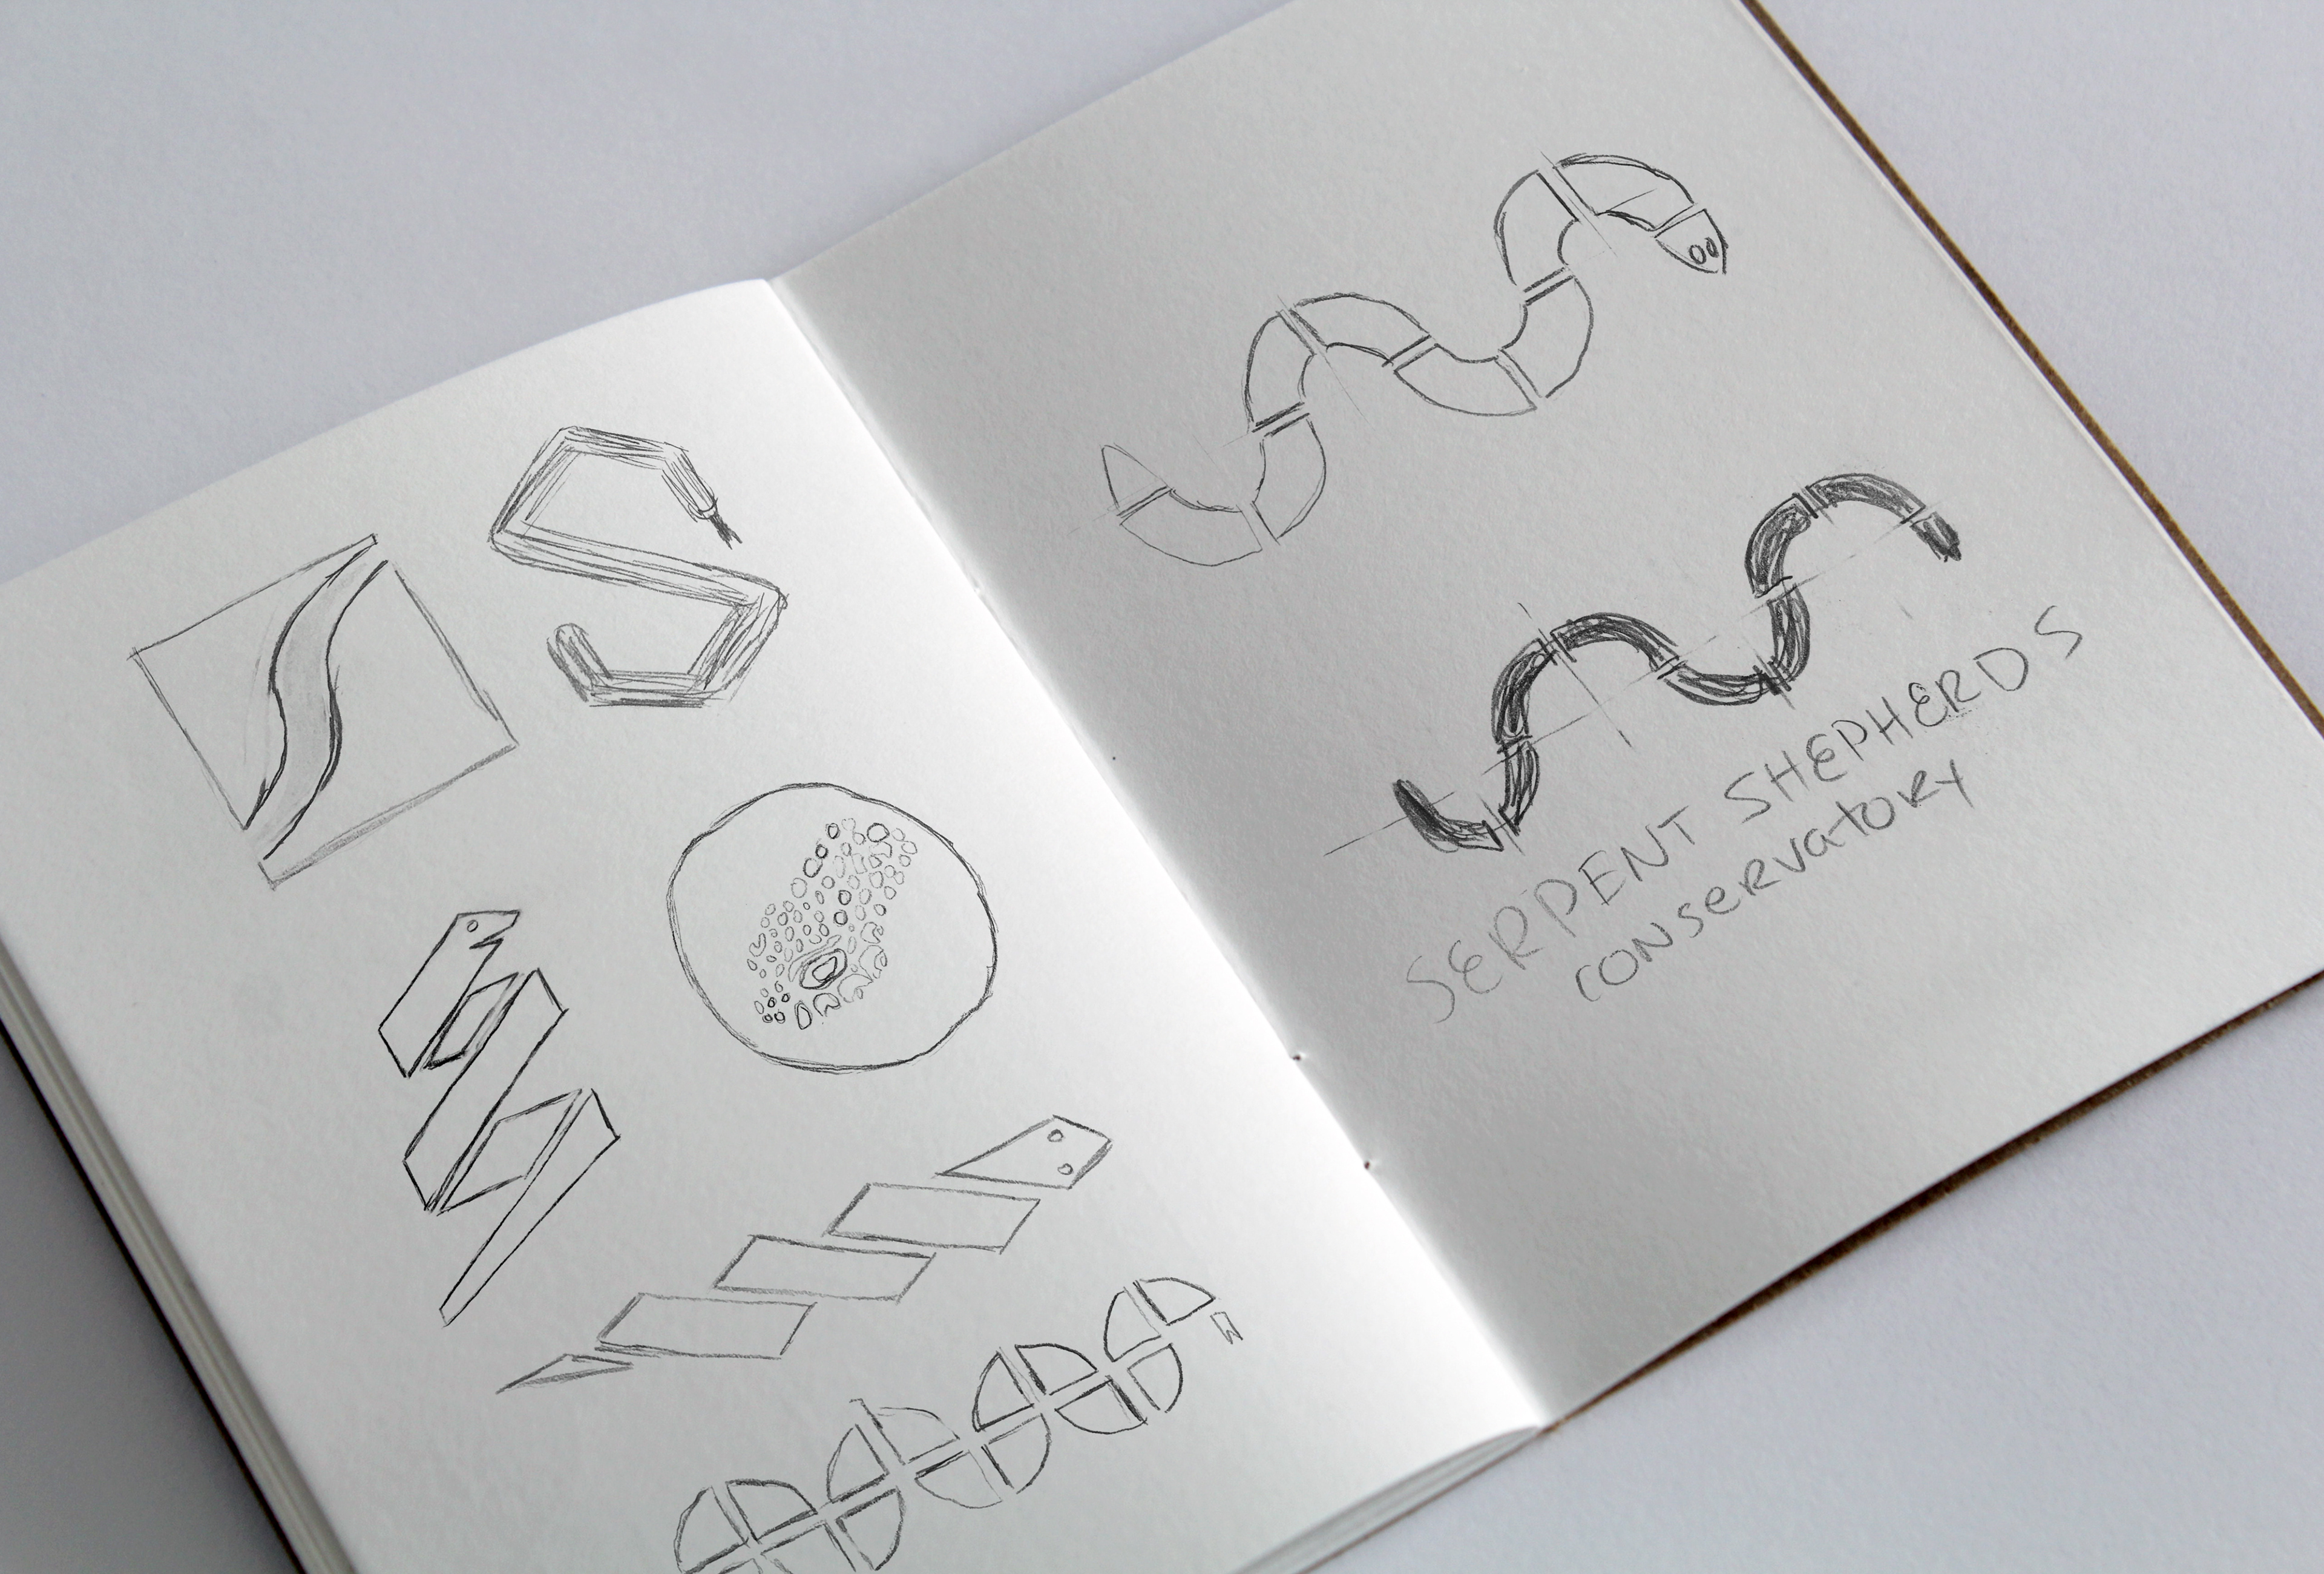 SERPENT SHEPHERDS
conservatory